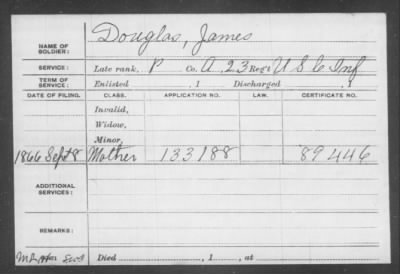 Douglas, James
NAME OF SOLDIER:
SERVICE: Late rank, P Co. A, 23 Reg't U S C Inf
TERM OF SERVICE: Enlisted , 1 Discharged , 1
DATE OF FILING. CLASS. APPLICATION NO. LAW. CERTIFICATE NO.
Invalid,
Widow,
Minor,
1866 Sept 8 Mother 133188 89446
ADDITIONAL SERVICES:
REMARKS:
Died , 1 , at